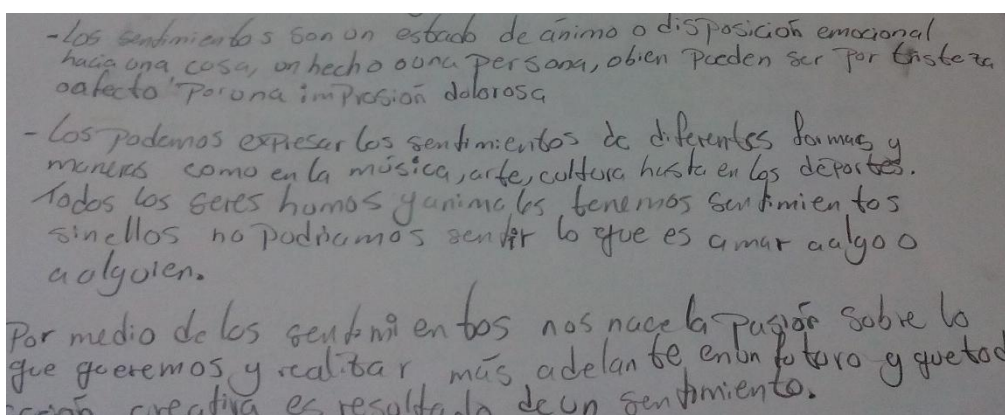 -Los sentimientos son un estado de ánimo o disposición emocional
hacia una cosa, un hecho o una persona, o bien pueden ser por tristeza
o afecto por una impresión dolorosa
-Los podemos expresar los sentimientos de diferentes formas y
maneras como en la música, arte, cultura hasta en los deportes.
Todos los seres humos y animales tenemos sentimientos
sin ellos no podríamos sentir lo que es amar a algo o
a alguien.
Por medio de los sentimientos nos nace la pasión sobre lo
que queremos y realizar más adelante en un futuro y que tod
creativa es resultado de un sentimiento.